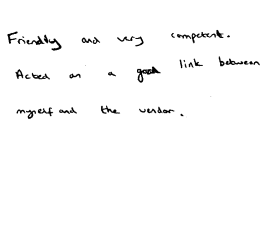 Friendly and very competent.
Acted as a good link between
myself and the vendor.